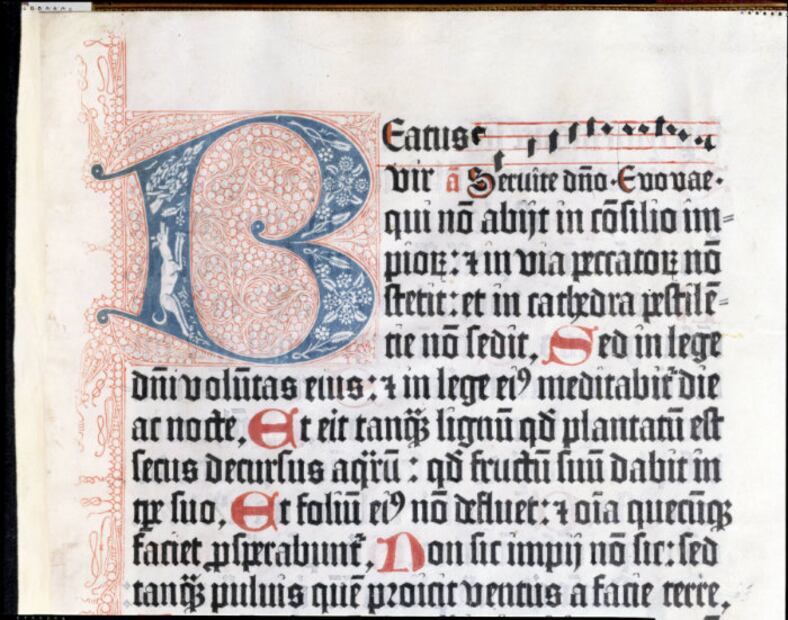 Beatus
vir ā Seruite dño. Evovae.
qui nō abijt in cōsilio im⸗
pioꝝ: ⁊ in via peccatoꝝ nō
stetit: et in cathedra pestilē⸗
tie nō sedit, Sed in lege
dñi volūtas eius: ⁊ in lege eiꝰ meditabiť die
ac nocte, Et erit tanqꝫ lignū qď plantatū est
secus decursus aqꝛū: qď fructū suū dabit in
tꝑe suo, Et foliū eiꝰ nō defluet: ⁊ oīa quecūqꝫ
faciet ꝓsꝑabunť, Non sic impij nō sic: sed
tanqꝫ puluis quē proicit ventus a facie terre,